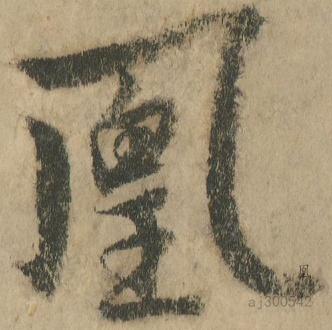 凰
凰
aj300542